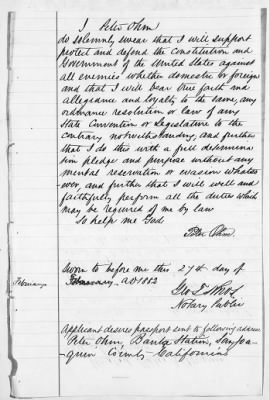 I Peter Ohm
do solemnly swear that I will support
protect and defend the Constitution and
Government of the United States against
all enemies whether domestic or foreign
and that I will bear true faith and
allegiance and loyalty to the same, any
ordinance resolution or law of any
State Convention or Legislature to the
contrary notwithstanding, and further
that I do this with a full determina
tion pledge and purpose without any
mental reservation or evasion whatso
ever, and further that I will well and
faithfully perform all the duties which
may be required of me by law
So help me God
Peter Ohm
Sworn to before me this 27th day of
February A.D 1882
February
Geo
Notary Public
Applicant desires passport sent to following address
Peter Ohm, Banta Station, San Joa-
quin County California